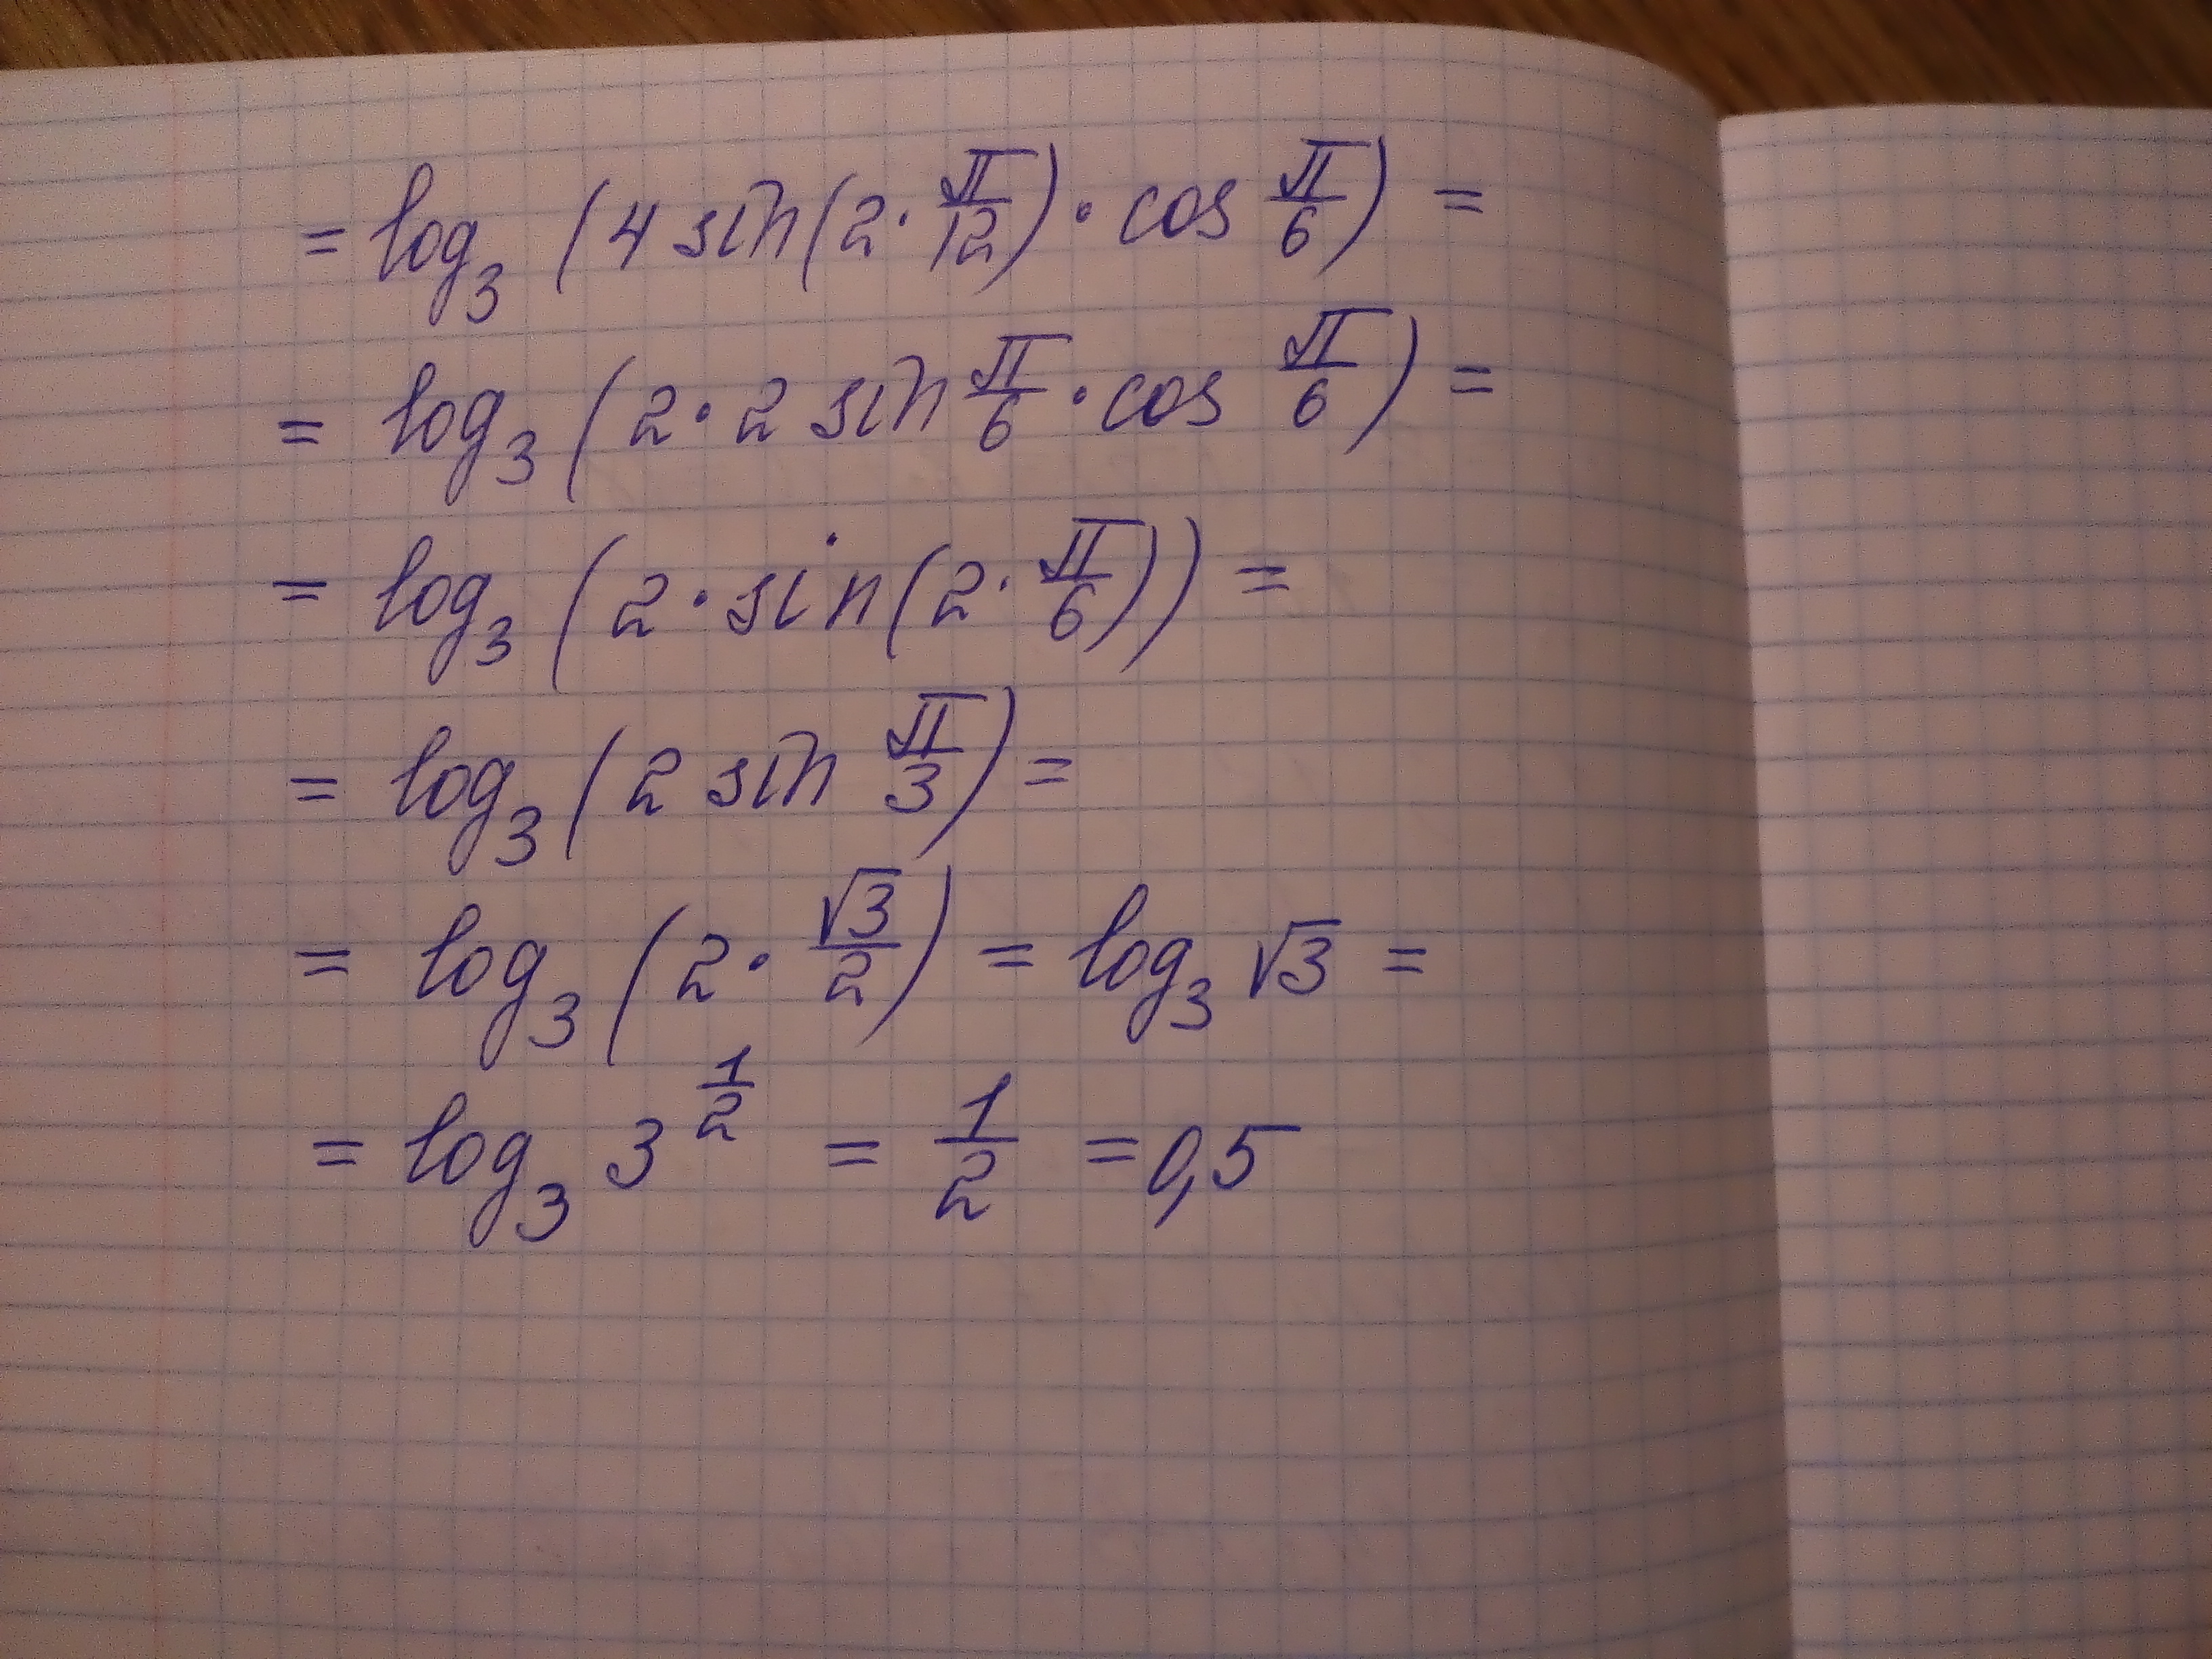 = log₃ (4 sin(2 · π/12) · cos π/6) =
= log₃ (2 · 2 sin π/6 · cos π/6) =
= log₃ (2 · sin(2 · π/6)) =
= log₃ (2 sin π/3) =
= log₃ (2 · √3/2) = log₃ √3 =
= log₃ 3^(1/2) = 1/2 = 0,5